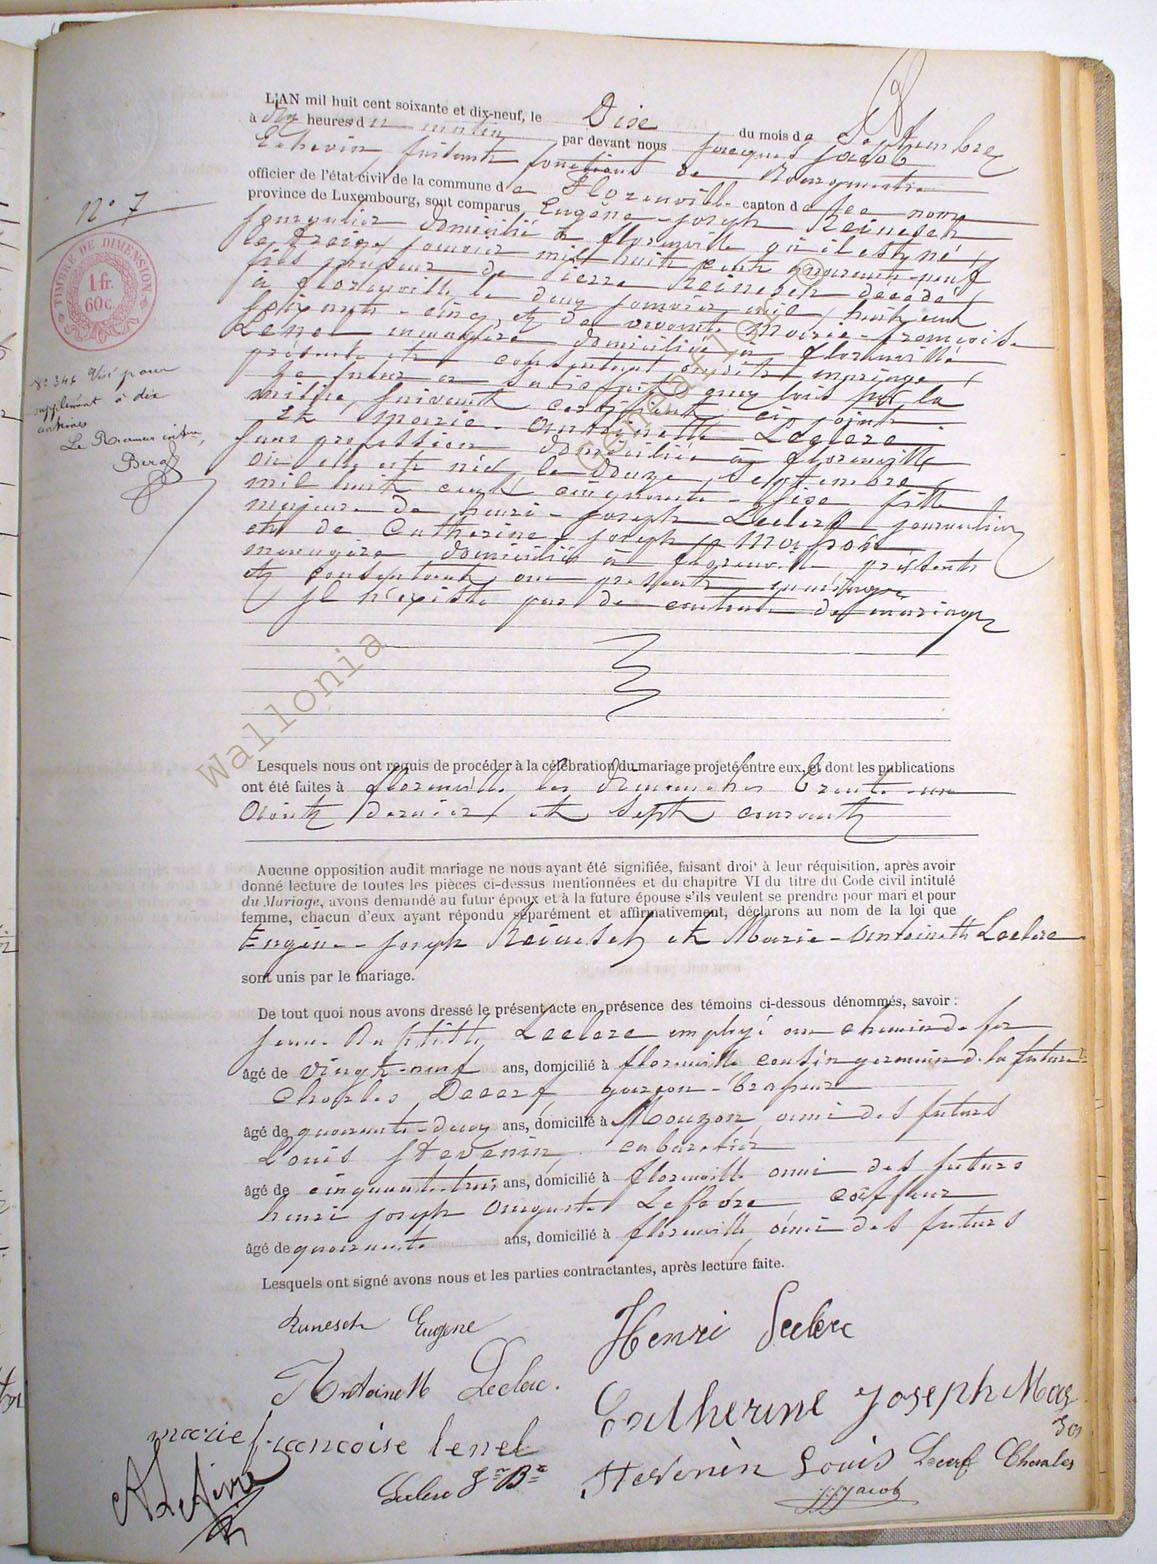 L'AN mil huit cent soixante et dix-neuf, le Dise du mois de Septembre
à dix heures du matin par devant nous Jacques Jacob
Echevin faisant fonctions de Bourgmestre
officier de l'état civil de la commune de Florenville canton de ce nom
province de Luxembourg, sont comparus Eugène-Joseph Reinesch
journalier domicilié à Florenville où il est né
le treize janvier mil huit cent quarante-neuf
fils majeur de Pierre Reinesch décédé
à Florenville le deux janvier mil huit cent
soixante-cinq et de vivante Marie-Françoise
Lenel ménagère domiciliée à Florenville
présente et consentant au dit mariage
Le futur a satisfait aux lois sur la
milice, suivant certificat ci joint
Et Marie-Antoinette Leclere
sans profession domiciliée à Florenville
où elle est née le douze septembre
mil huit cent cinquante-sise fille
majeure de Henri-Joseph Leclerc journalier
et de Catherine-Joseph Masson
ménagère domiciliés à Florenville présents
et consentant au présent mariage
Il n'existe pas de contrat de mariage
N° 7
TIMBRE DE DIMENSION
1 fr.
60c.
N° 346 Visé pour
supplément à dix
centimes
Le Receveur
Wallonia
Lesquels nous ont requis de procéder à la célébration du mariage projeté entre eux, et dont les publications
ont été faites à Florenville les dimanches trente-un
Août dernier et sept courant
Aucune opposition audit mariage ne nous ayant été signifiée, faisant droit à leur réquisition, après avoir
donné lecture de toutes les pièces ci-dessus mentionnées et du chapitre VI du titre du Code civil intitulé
du Mariage, avons demandé au futur époux et à la future épouse s'ils veulent se prendre pour mari et pour
femme, chacun d'eux ayant répondu séparément et affirmativement, déclarons au nom de la loi que
Eugène-Joseph Reinesch et Marie-Antoinette Leclere
sont unis par le mariage.
De tout quoi nous avons dressé le présent acte en présence des témoins ci-dessous dénommés, savoir :
Jean Baptiste Leclere employé au chemin de fer
âgé de vingt-neuf ans, domicilié à Florenville cousin germain de la future
Charles Decerf garçon-brasseur
âgé de quarante-deux ans, domicilié à Mouzon, ami des futurs
Louis Stevenin, cabaretier
âgé de cinquante trois ans, domicilié à Florenville ami des futurs
henri Joseph Auguste Lefevre coiffeur
âgé de quarante ans, domicilié à Florenville, ami des futurs
Lesquels ont signé avons nous et les parties contractantes, après lecture faite.
Runesch Eugene
Henri Leclerc
Antoinett Leclerc.
Catherine Joseph Mas
son
marie françoise lenel
Stevenin Louis Decerf Charles
ALefèvre
Leclere Jn Bte
JJJacob